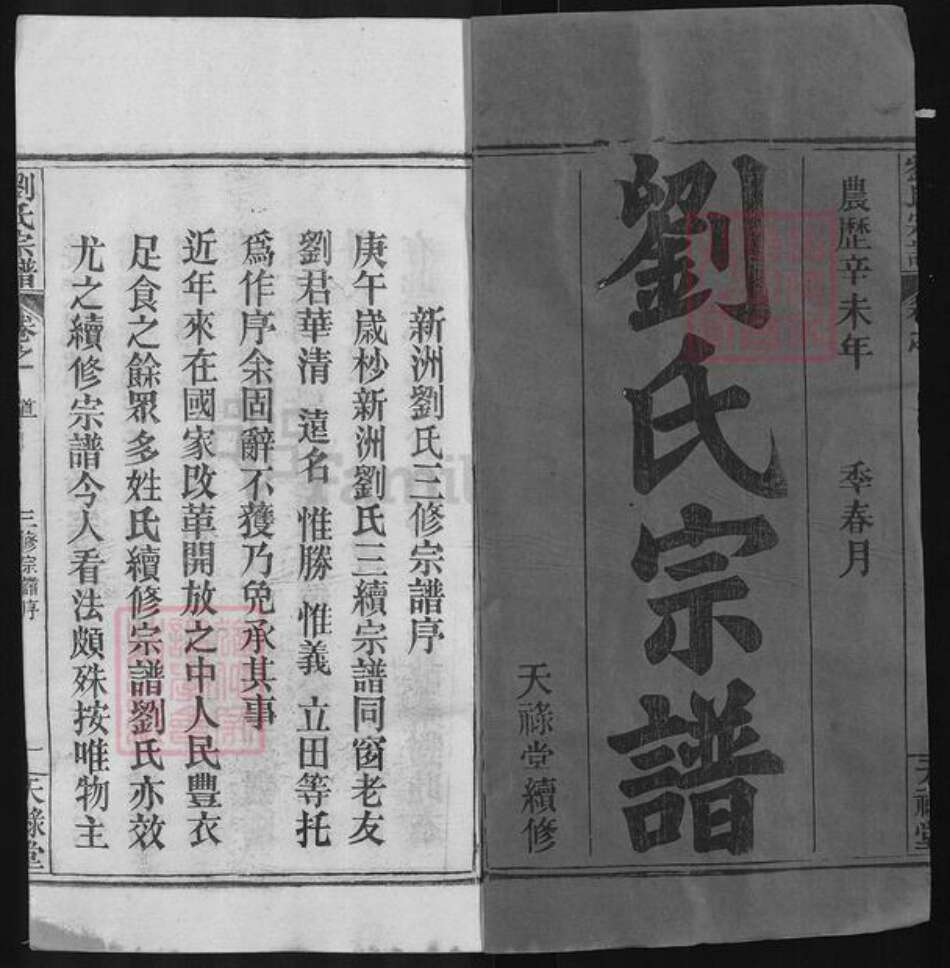 農歷辛未年 季春月
劉氏宗譜
天祿堂續修
新洲劉氏三修宗譜序
庚午歲杪新洲劉氏三續宗譜同窗老友
劉君華清 遠名 惟勝 惟義 立田等托
爲作序余固辭不獲乃免承其事
近年來在國家改革開放之中人民豐衣
足食之餘眾多姓氏續修宗譜劉氏亦效
尤之續修宗譜今人看法頗殊按唯物主
劉氏宗譜 卷之 首 三修宗譜序 一 天祿堂